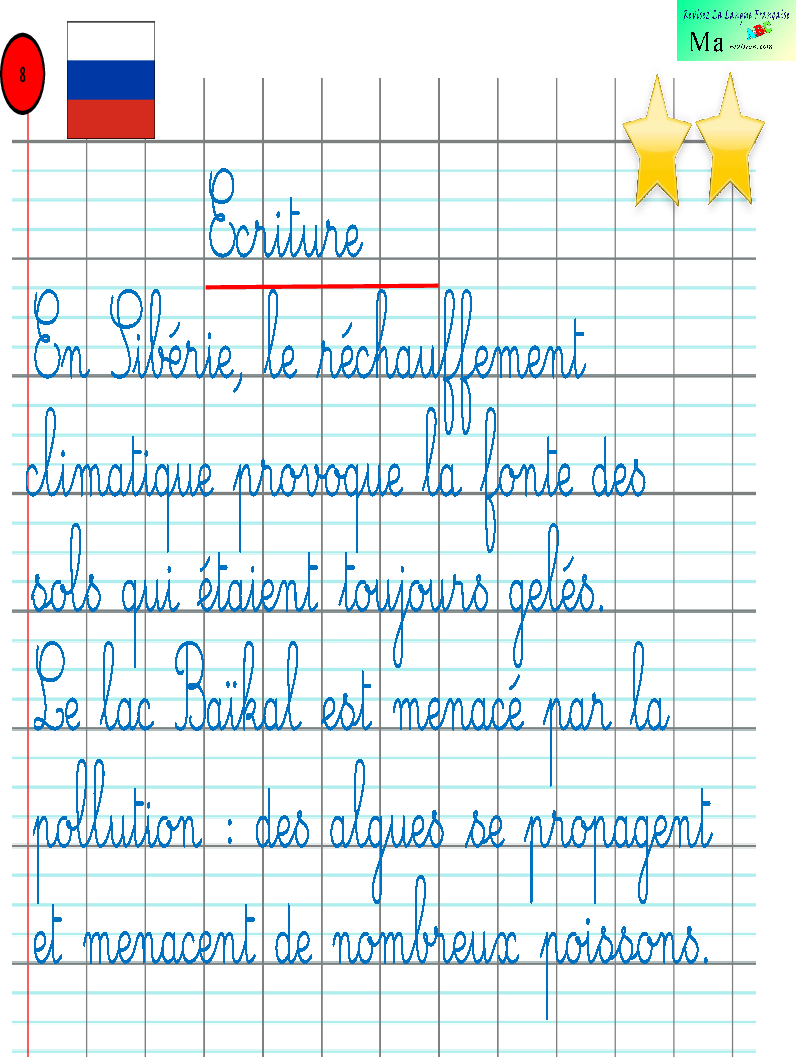 Revisez La Langue Française
Ma
revision.com
8
Ecriture
En Sibérie, le réchauffement
climatique provoque la fonte des
sols qui étaient toujours gelés.
Le lac Baïkal est menacé par la
pollution : des algues se propagent
et menacent de nombreux poissons.